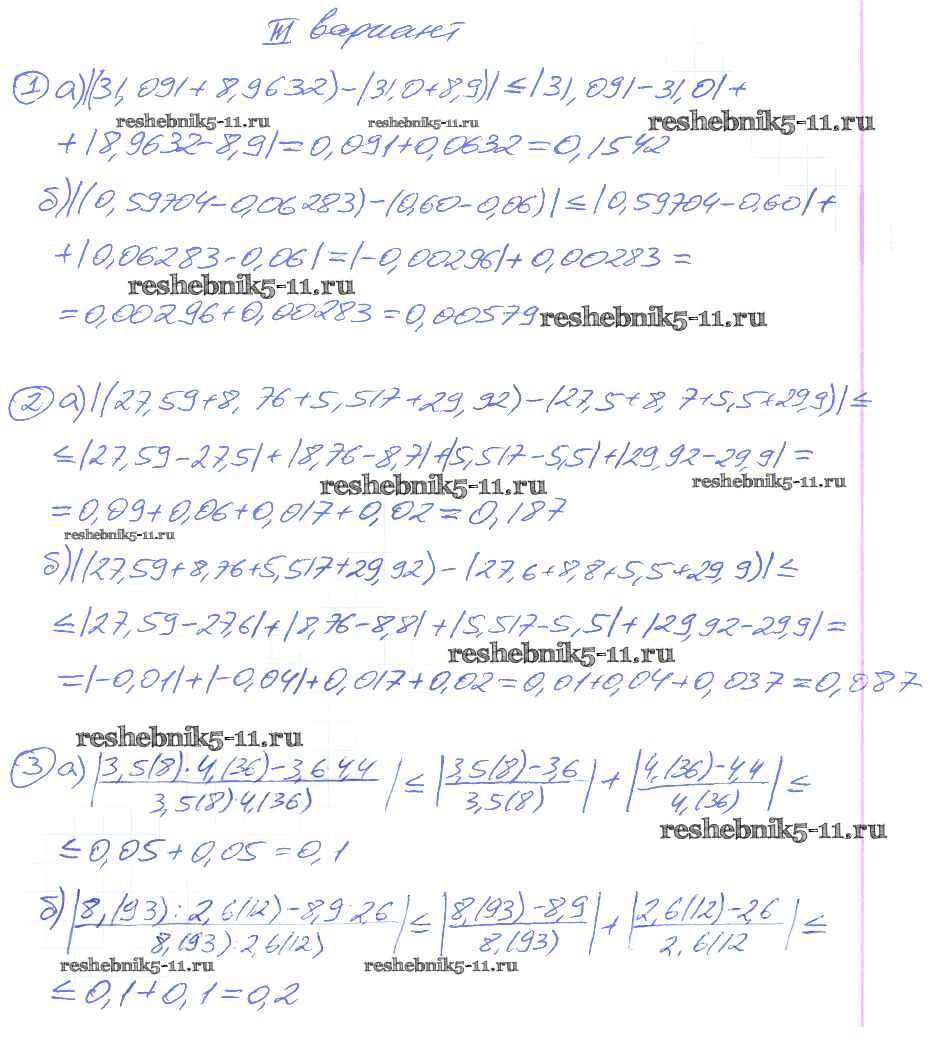 III вариант
① а) |(31,091 + 8,9632) - (31,0 + 8,9)| ≤ |31,091 - 31,0| +
reshebnik5-11.ru reshebnik5-11.ru reshebnik5-11.ru
+ |8,9632 - 8,9| = 0,091 + 0,0632 = 0,1542
б) |(0,59704 - 0,06283) - (0,60 - 0,06)| ≤ |0,59704 - 0,60| +
+ |0,06283 - 0,06| = |-0,00296| + 0,00283 =
reshebnik5-11.ru
= 0,00296 + 0,00283 = 0,00579 reshebnik5-11.ru
② а) |(27,59 + 8,76 + 5,517 + 29,92) - (27,5 + 8,7 + 5,5 + 29,9)| ≤
≤ |27,59 - 27,5| + |8,76 - 8,7| + |5,517 - 5,5| + |29,92 - 29,9| =
reshebnik5-11.ru reshebnik5-11.ru
= 0,09 + 0,06 + 0,017 + 0,02 = 0,187
reshebnik5-11.ru
б) |(27,59 + 8,76 + 5,517 + 29,92) - (27,6 + 8,8 + 5,5 + 29,9)| ≤
≤ |27,59 - 27,6| + |8,76 - 8,8| + |5,517 - 5,5| + |29,92 - 29,9| =
reshebnik5-11.ru
= |-0,01| + |-0,04| + 0,017 + 0,02 = 0,01 + 0,04 + 0,037 = 0,087
reshebnik5-11.ru
③ а) |3,5(8) · 4,(36) - 3,6 · 4,4 / 3,5(8) · 4,(36)| ≤ |3,5(8) - 3,6 / 3,5(8)| + |4,(36) - 4,4 / 4,(36)| ≤
reshebnik5-11.ru
≤ 0,05 + 0,05 = 0,1
б) |8,(93) : 2,6(12) - 8,9 : 2,6 / 8,(93) : 2,6(12)| ≤ |8,(93) - 8,9 / 8,(93)| + |2,6(12) - 2,6 / 2,6(12| ≤
reshebnik5-11.ru reshebnik5-11.ru
≤ 0,1 + 0,1 = 0,2